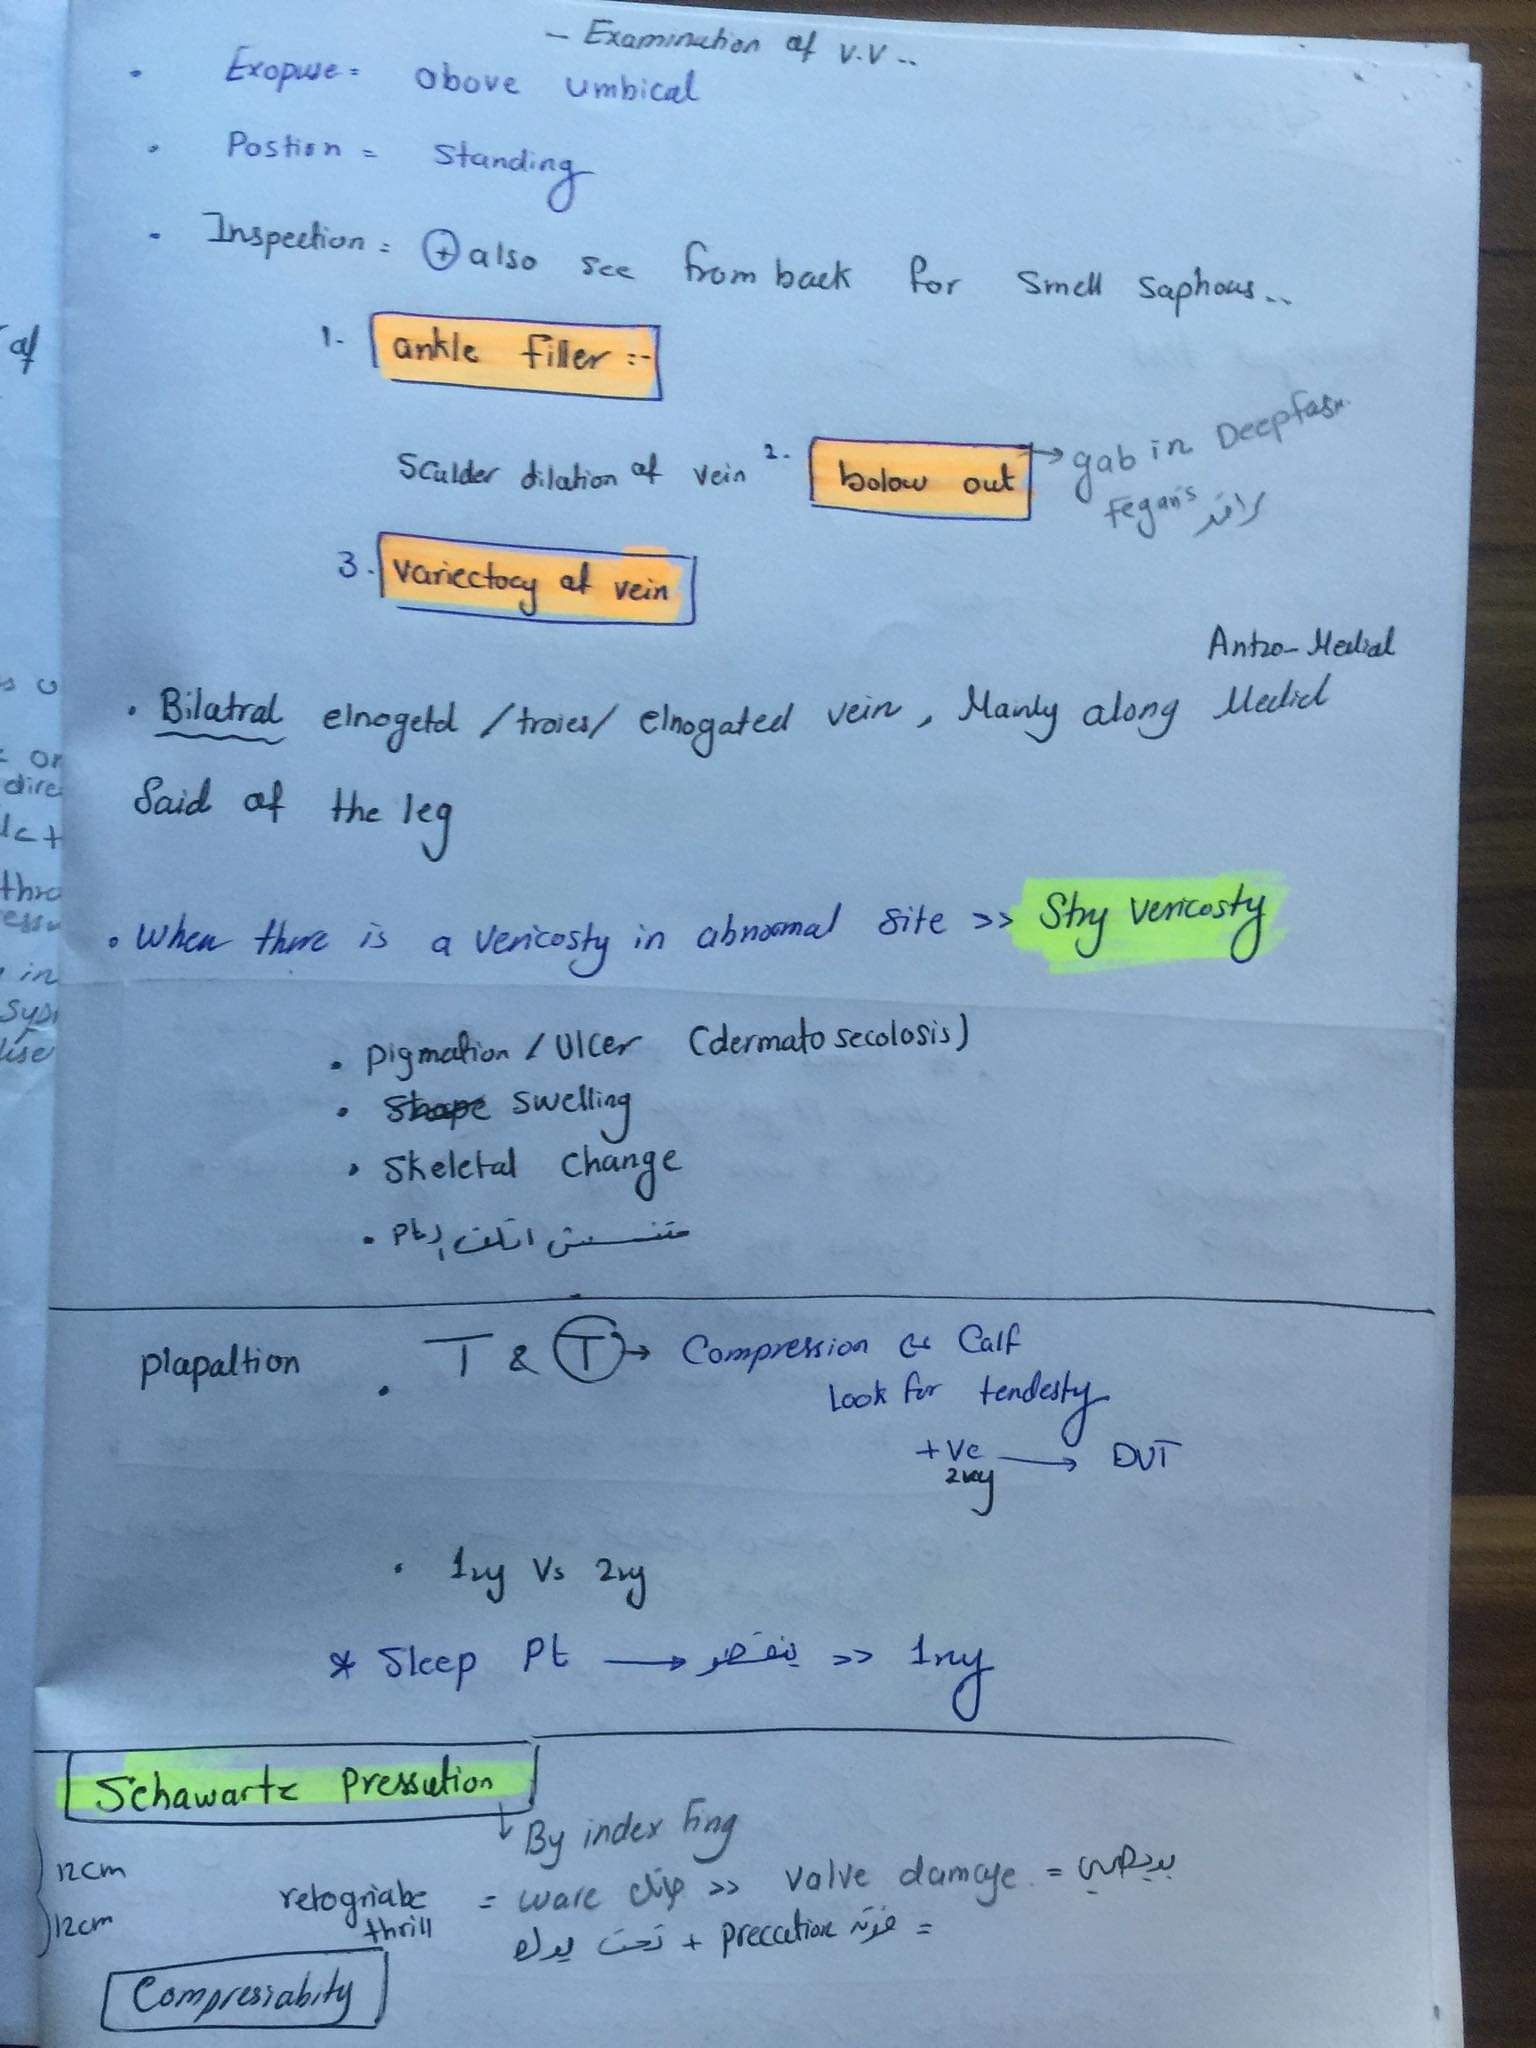 - Examination of V.V ..
• Exopuse = above umbical
• Postion = Standing
• Inspection = + also see from back for smell saphous..
1- ankle filler :-
Sculder dilation of vein 2. bolow out → gab in Deepfas
Fegan's
3. Variectocy of vein
Antro-Medial
• Bilatral elnogetd / troies / elnogated vein, Mainly along Medial
Said of the leg
• When there is a vericosty in abnormal site >> Stry vericosty
• pigmation / Ulcer (dermato secolosis)
• Shape swelling
• Skeletal Change
• Pt
plapaltion • T & T → Compression Calf
Look for tendesty
+ve → DVT
2ry
• 1ry Vs 2ry
* Sleep Pt → ينقصو >> 1ry
Schawartz Pressution
↓ By index fing
12cm
retogriabe = ware >> valve damage =
12cm
thrill تحت + preccation =
Compresiabity
of
or
dire
thro
in